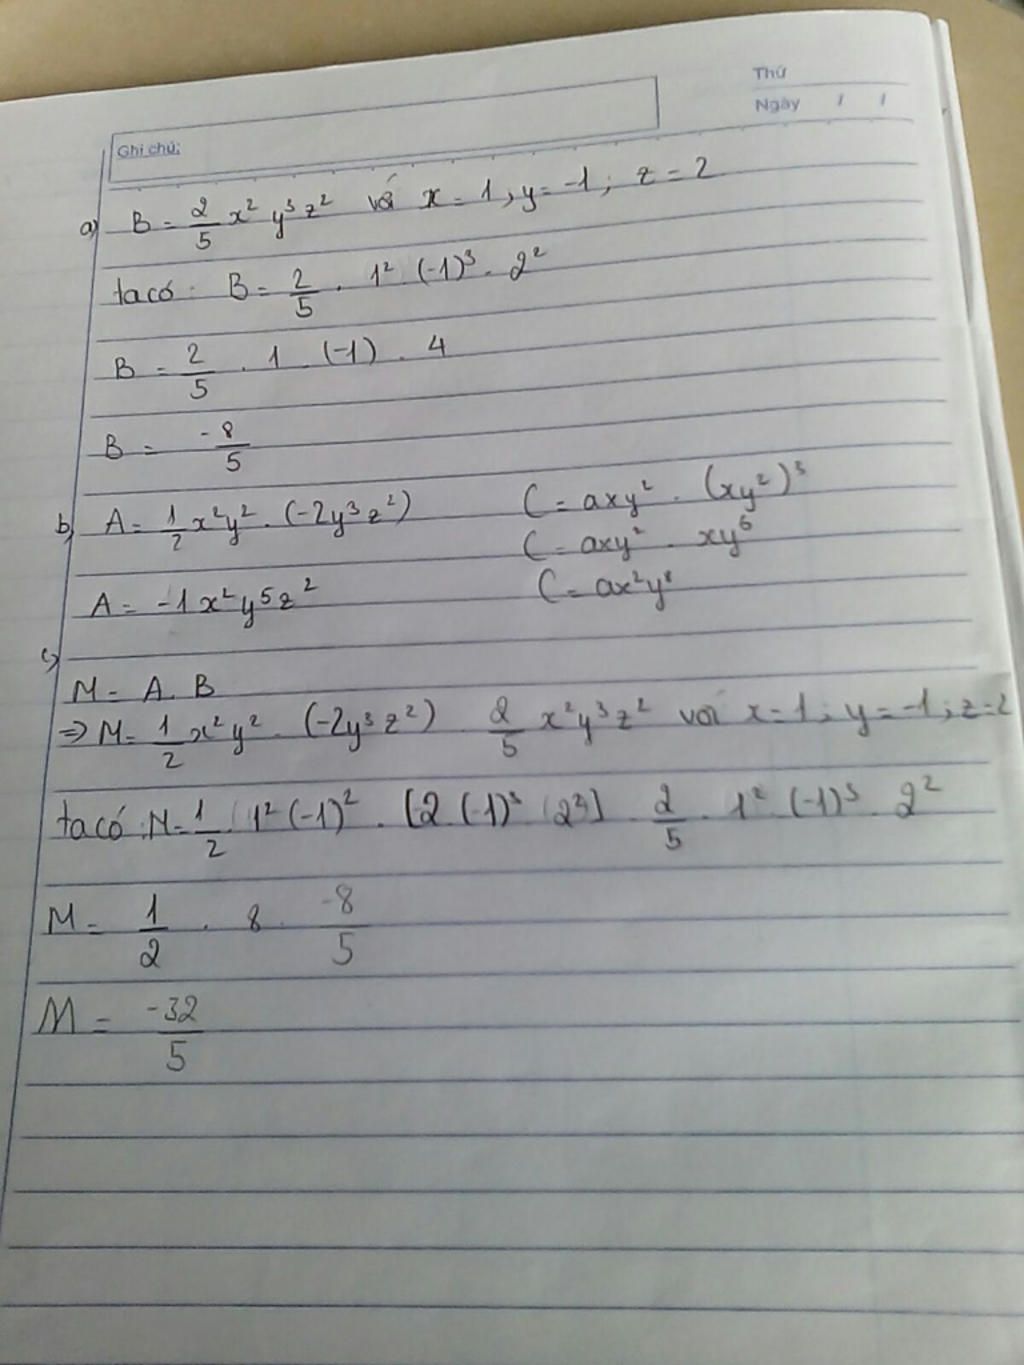 Thứ
Ngày / /
Ghi chú:
a) B = 2/5 x² y³ z² với x = 1, y = -1; z = 2
ta có: B = 2/5 . 1² . (-1)³ . 2²
B = 2/5 . 1 . (-1) . 4
B = -8/5
b) A = 1/2 x²y² . (-2y³z²)
A = -1x²y⁵z²
C = axy² . (xy²)³
C = axy² . xy⁶
C = ax²y⁸
c)
M = A. B
⇒ M = 1/2 x²y² . (-2y³z²) . 2/5 x²y³z² với x=1; y=-1; z=2
ta có: M = 1/2 . 1² (-1)² . [-2 . (-1)³ . (2²)] . 2/5 . 1² . (-1)³ . 2²
M = 1/2 . 8 . -8/5
M = -32/5